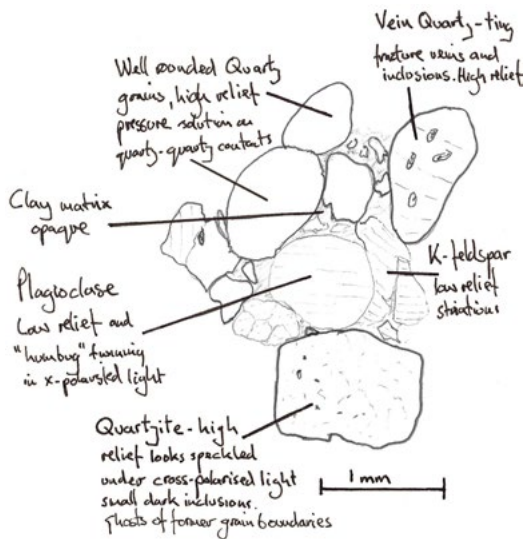 Vein Quartz-tiny
fracture veins and
inclusions. High relief
Well rounded Quartz
grains, high relief
pressure solution on
quartz-quartz contacts
Clay matrix
opaque
K-feldspar
low relief
striations
Plagioclase
Low relief and
"humbug" twinning
in x-polarised light
Quartzite-high
relief looks speckled
under cross-polarised light
small dark inclusions.
ghosts of former grain boundaries
1mm